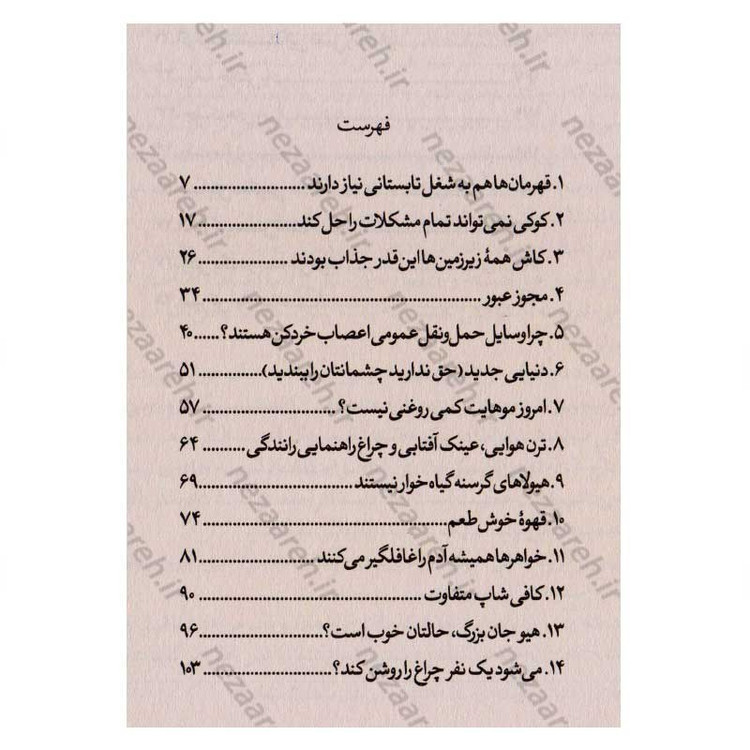 فهرست
۱. قهرمان‌ها هم به شغل تابستانی نیاز دارند ........................... ۷
۲. کوکی نمی‌تواند تمام مشکلات را حل کند........................ ۱۷
۳. کاش همهٔ زیرزمین‌ها این‌قدر جذاب بودند ...................... ۲۶
۴. مجوز عبور ................................................................... ۳۴
۵. چرا وسایل حمل‌ونقل عمومی اعصاب خردکن هستند؟...... ۴۰
۶. دنیایی جدید (حق ندارید چشمانتان را ببندید)............... ۵۱
۷. امروز موهایت کمی روغنی نیست؟................................ ۵۷
۸. ترن هوایی، عینک آفتابی و چراغ راهنمایی رانندگی.......... ۶۴
۹. هیولاهای گرسنه گیاه‌خوار نیستند .............................. ۶۹
۱۰. قهوهٔ خوش طعم........................................................... ۷۴
۱۱. خواهرها همیشه آدم را غافلگیر می‌کنند ........................... ۸۱
۱۲. کافی شاپ متفاوت ..................................................... ۹۰
۱۳. هیو جان بزرگ، حالتان خوب است؟.............................. ۹۶
۱۴. می‌شود یک نفر چراغ را روشن کند؟............................... ۱۰۳
nezaareh.ir